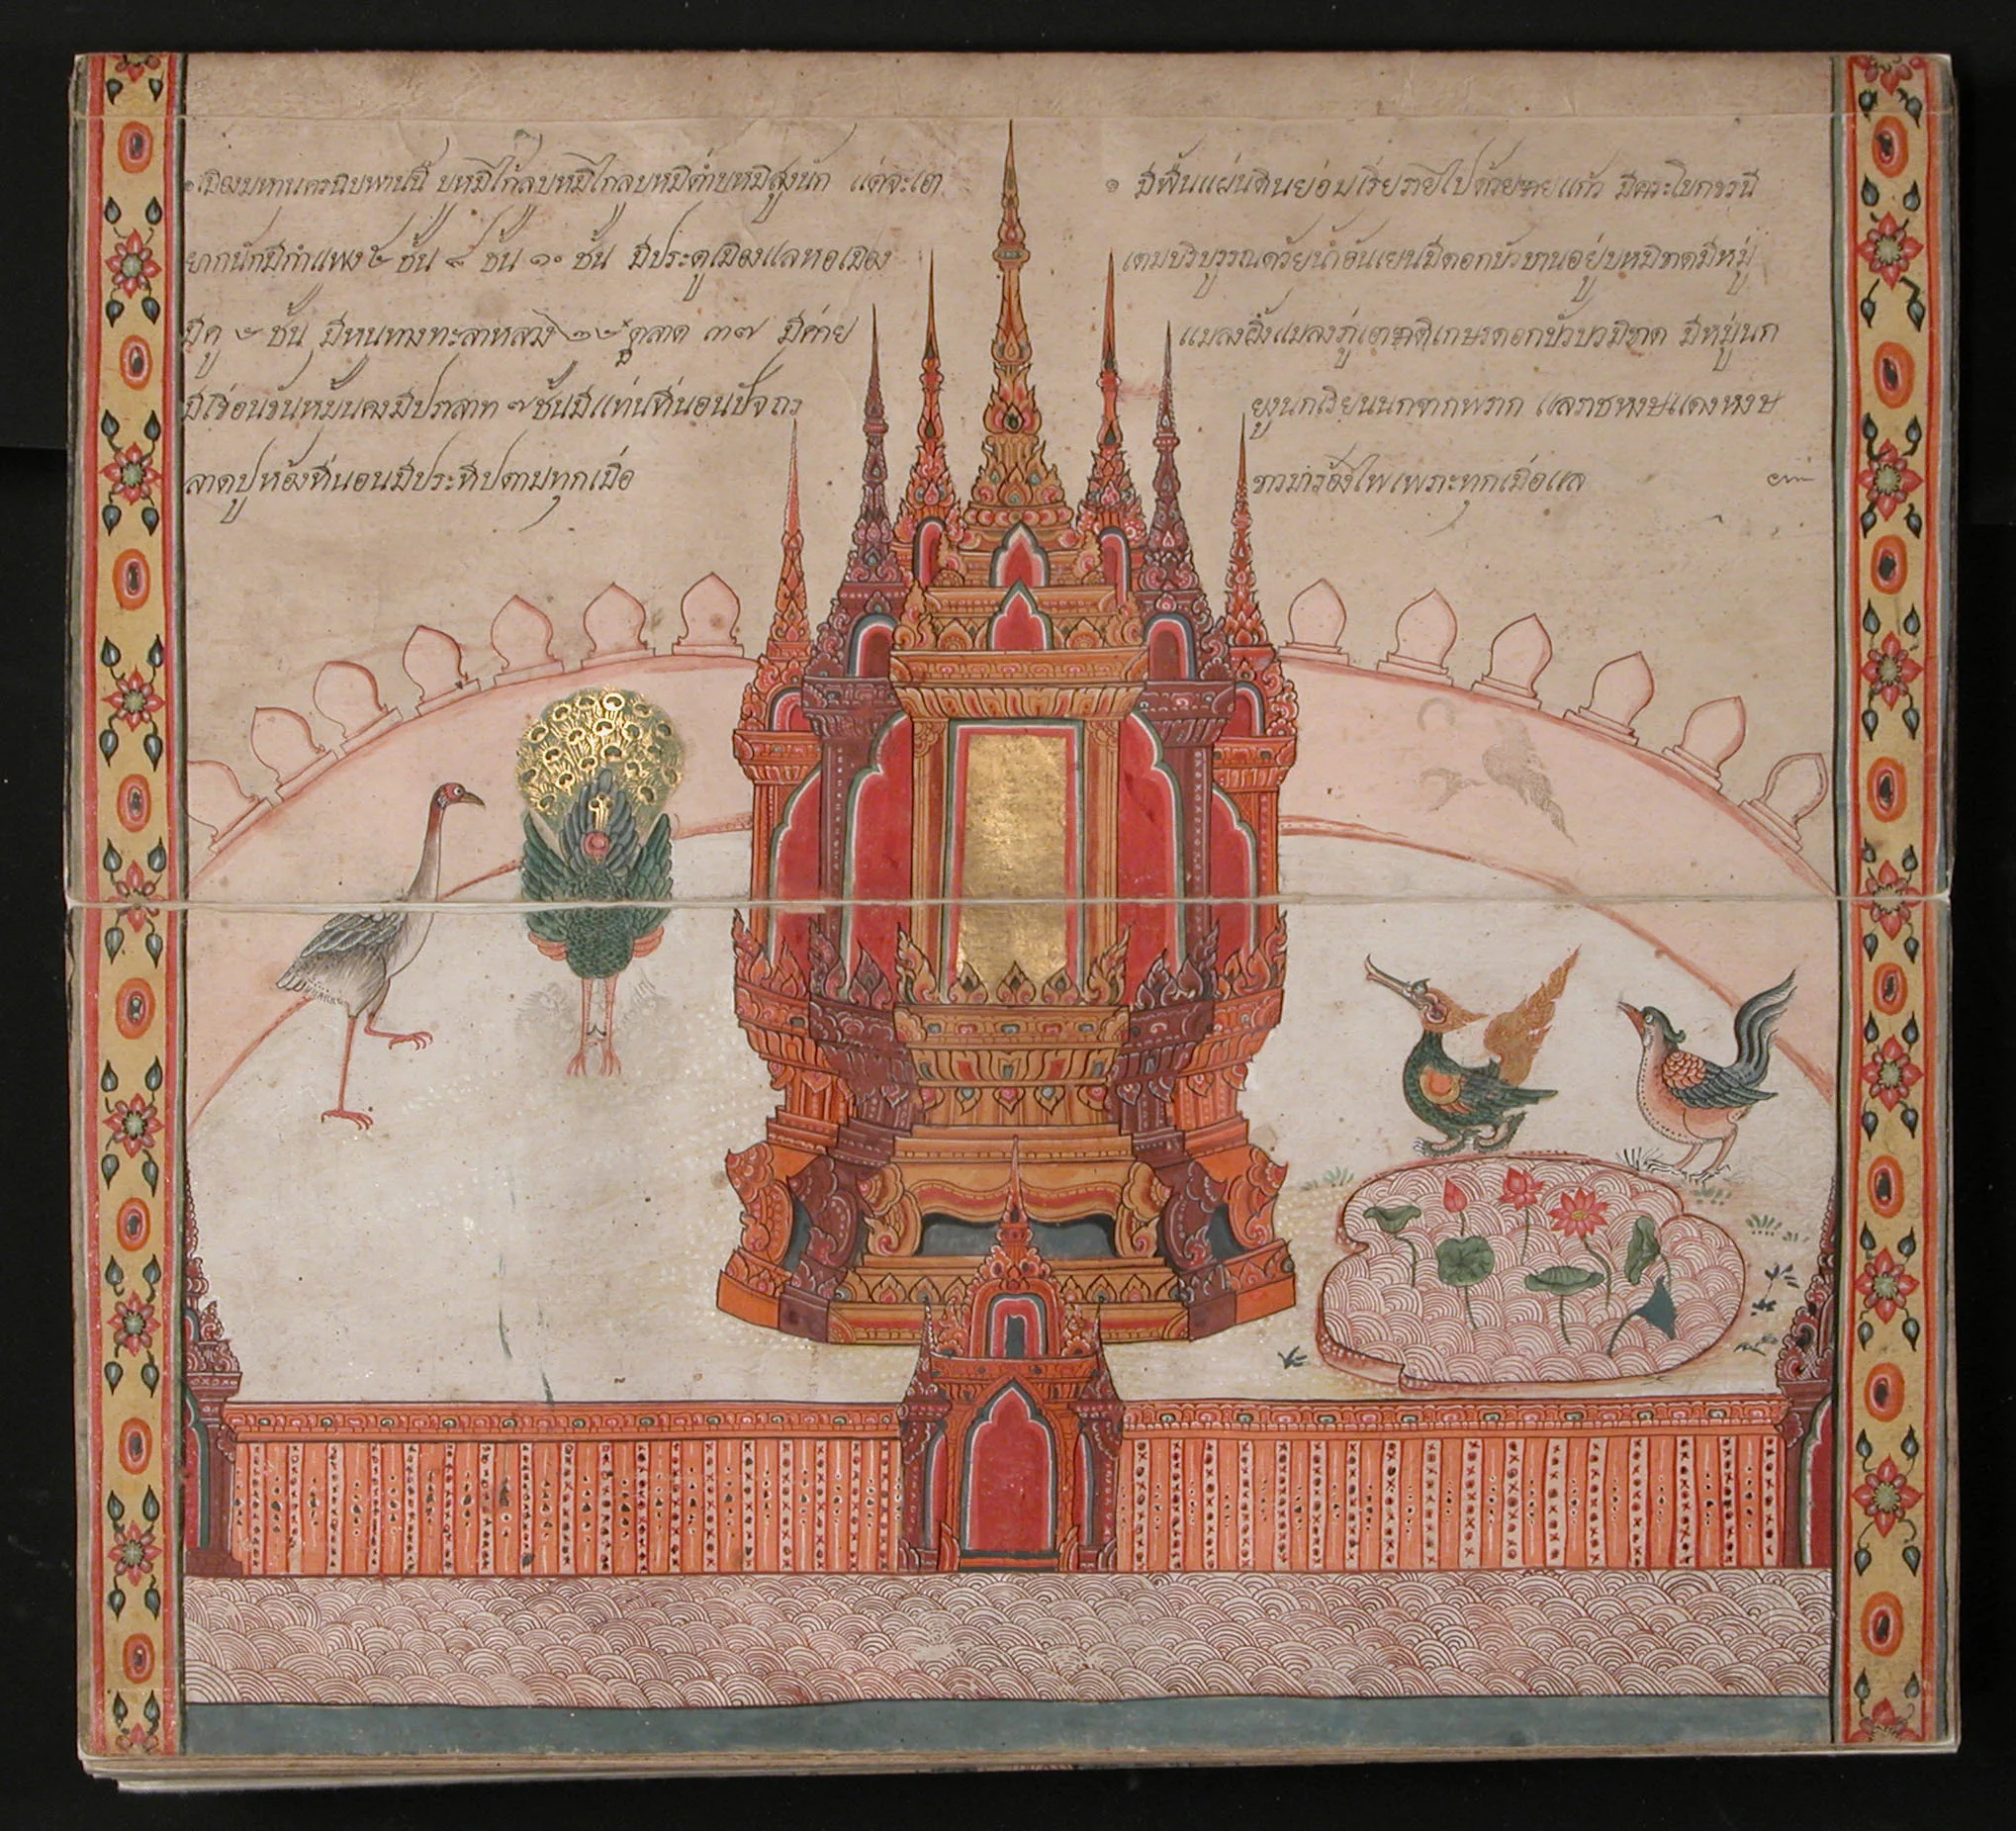 ๏ เมืองมหานครนิบพานนี้ บหมีไก้ลบหมีไกลบหมีต่ำบหมีสูงนัก แต่จะ
ยากนักมีกำแพง ชั้น ๘ ชั้น ๑๐ ชั้น มีประตูเมืองแลหอเมือง
มีคู ๒ ชั้น มีหนทางทะลาหลวง ๒๒ ตลาด ๓๗ มีค่าย
มีเขื่อนขันหมั้นคงมีปราสาท ๗ ชั้นมีแท่นที่นอนปัจถร
ลาดปูห้องที่นอนมีประทิปตามทุกเมื่อ
๑ มีพื้นแผ่นดินย่อมเรี่ยรายไปด้วยทรายแก้ว มีตระโบกขรนี
เตมบริบูรรณด้วยน้ำอันเยนมีดอกบัวบานอยู่บหมิขาดมีหมู่
แมลงผึ้งแมลงภู่ เกษรดอกบัวบวมิขาด มีหมู่นก
ยูงนกเรียนนกจากพราก แลราชหงษแดงหงษ
ขาวมาร้องไพเพราะทุกเมื่อแล